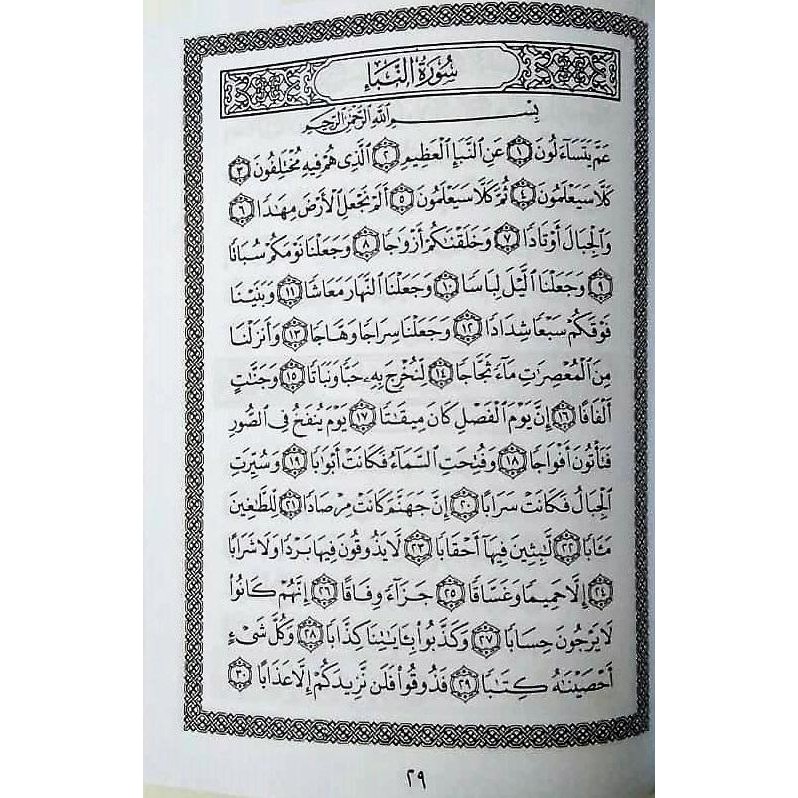 سُورَةُ النَّبَإِ
بِسْمِ اللَّهِ الرَّحْمَٰنِ الرَّحِيمِ
عَمَّ يَتَسَاءَلُونَ ١ عَنِ النَّبَإِ الْعَظِيمِ ٢ الَّذِي هُمْ فِيهِ مُخْتَلِفُونَ ٣
كَلَّا سَيَعْلَمُونَ ٤ ثُمَّ كَلَّا سَيَعْلَمُونَ ٥ أَلَمْ نَجْعَلِ الْأَرْضَ مِهَٰدًا ٦
وَالْجِبَالَ أَوْتَادًا ٧ وَخَلَقْنَٰكُمْ أَزْوَٰجًا ٨ وَجَعَلْنَا نَوْمَكُمْ سُبَاتًا
٩ وَجَعَلْنَا الَّيْلَ لِبَاسًا ١٠ وَجَعَلْنَا النَّهَارَ مَعَاشًا ١١ وَبَنَيْنَا
فَوْقَكُمْ سَبْعًا شِدَادًا ١٢ وَجَعَلْنَا سِرَاجًا وَهَّاجًا ١٣ وَأَنزَلْنَا
مِنَ الْمُعْصِرَٰتِ مَاءً ثَجَّاجًا ١٤ لِّنُخْرِجَ بِهِۦ حَبًّا وَنَبَاتًا ١٥ وَجَنَّٰتٍ
أَلْفَافًا ١٦ إِنَّ يَوْمَ الْفَصْلِ كَانَ مِيقَٰتًا ١٧ يَوْمَ يُنفَخُ فِي الصُّورِ
فَتَأْتُونَ أَفْوَاجًا ١٨ وَفُتِحَتِ السَّمَاءُ فَكَانَتْ أَبْوَٰبًا ١٩ وَسُيِّرَتِ
الْجِبَالُ فَكَانَتْ سَرَابًا ٢٠ إِنَّ جَهَنَّمَ كَانَتْ مِرْصَادًا ٢١ لِّلطَّٰغِينَ
مَـَٔابًا ٢٢ لَّٰبِثِينَ فِيهَا أَحْقَابًا ٢٣ لَّا يَذُوقُونَ فِيهَا بَرْدًا وَلَا شَرَابًا
٢٤ إِلَّا حَمِيمًا وَغَسَّاقًا ٢٥ جَزَاءً وِفَاقًا ٢٦ إِنَّهُمْ كَانُوا
لَا يَرْجُونَ حِسَابًا ٢٧ وَكَذَّبُوا بِـَٔايَٰتِنَا كِذَّابًا ٢٨ وَكُلَّ شَيْءٍ
أَحْصَيْنَٰهُ كِتَٰبًا ٢٩ فَذُوقُوا فَلَن نَّزِيدَكُمْ إِلَّا عَذَابًا ٣٠
٢٩